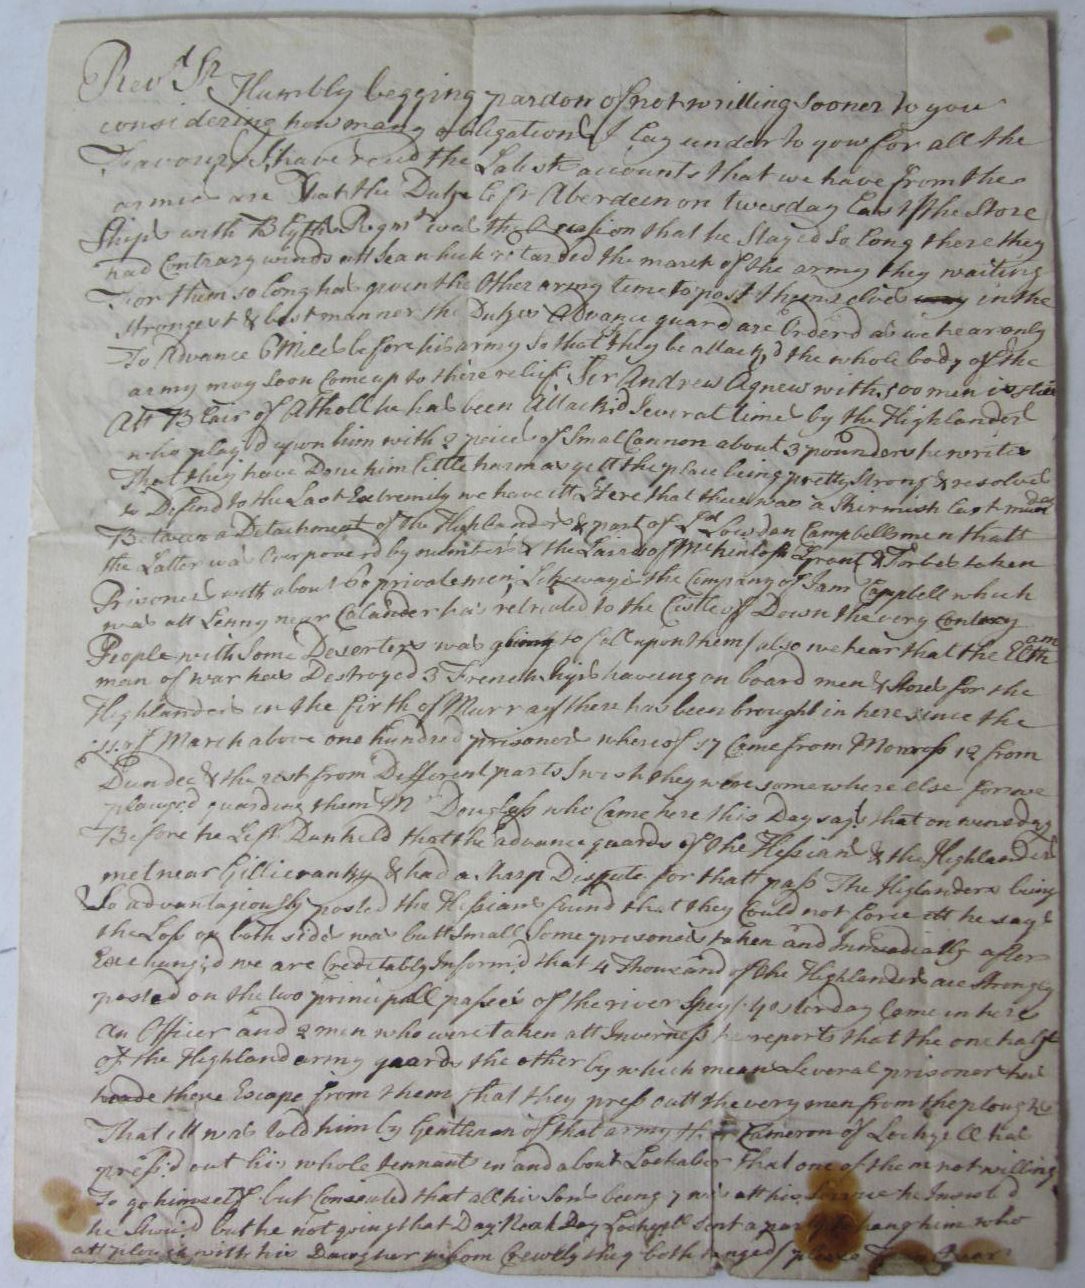 Revd Sr
Humbly begging pardon of not writting Sooner to you
considering how many obligations I Lay under to you for all the
Favours I have recd the Latest accounts that we have from the
armies are That the Duke Left Aberdeen on twesday Last the Store
Ships with Blyths Regmt was the occasion that he Stayed So Long there they
had Contrary winds att Sea which retarded the march of the army they waiting
For them so Long has given the Other army time to post themselves in the
strongest & best manner the Dukes Advance guard are Order'd as we hear only
To Advance 6 Miles before his army So that if they be attack'd the whole body of the
army may Soon Come up to there relief. Sir Andrew Agnew with 500 men is still
Att Blair of Atholl he has been Attack'd Several times by the Highlanders
who play'd upon him with 2 peices of Small Cannon about 3 pounders he writes
That they have Done him little harm as yett the place being pretty Strong & resolves
to Defend to the Last Extremity we have itt Here that there was a Skirmish Last munday
Between a Detachment of the Highlanders & part of Ld Lowdan Campbells men thatt
the Latter was Overpowerd by numbers & the Lairds of McKintosh Grant & Forbes taken
Prisoners with about 60 private men; Likewayes the Company of Jam Campbell which
was att Lenny near Calander has retreated to the Castle of Down the very Contery
People with Some Deserters was going to fall upon them / also we hear that the Eltham
man of war has Destroyed 3 French Ships haveing on board men & Stores for the
Highlanders in the Firth of Murray / there has been brought in here since the
of March above one hundred prisoners whereof 57 Came from Monross 12 from
Dundee & the rest from Different parts I wish they were somewhere else for we
plagued guarding them Mr Douglass who Came here this Day says that on wensday
Before he Left Dunkeld that the advance guards of the Hessians & the Highlanders
met near Gillicranky & had a sharp Dispute for thatt pass The Highlanders being
So advantagiously posted the Hessians found that they Could not force itt he says
the Loss on both sides was butt Small Some prisoners taken and Immediatly after
Exchang'd we are Creditably Inform'd that 4 Thousand of the Highlanders are Strongly
posted on the two principall passes of the river Spey / yesterday Came in here
an Officer and 2 men who were taken att Inverness he reports that the one half
of the Highland army guards the other by which means Several prisoners has
made there Escape from them / that they press outt the very men from the ploughs
That itt was told him by Gentlemen of that army that Cameron of Lochyell has
press'd out his whole tennants in and about Lochaber that one of them not willing
To go himself but Consented that all his Sons being 7 was att his Service he Insisted
he Shou'd but he not going that Day Next Day Lochyell Sent a party to hang him who
att plough with his Daughter whom Crewlly they both hanged